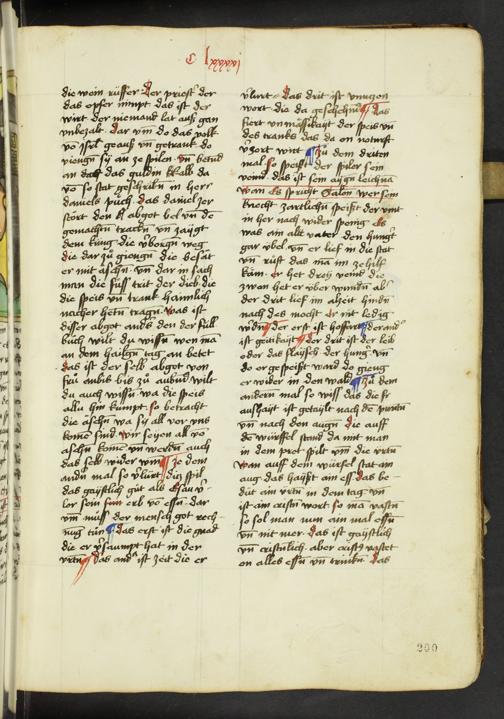 C lxxxxv
die wein rüffer der priest der
das opfer nimpt das ist der
wirt der niemand lat auß gan
unbezalt dar um do das volk
vo jsrl geaß un getrank do
giengn sy an ze spiln un betnd
an das guldin kalb da
vo so stat geschribn in herr
daniels puch das daniel zer
stört den abgot bel un de
gemachtn trackn un zaigt
dem küng die verborgn weg
die dar zu giengn die besät
er mit aschn un dar in sach
man die fuss trit der dieb die
die speis un trank haimlich
nacher hein trugn was ist
diser abgot anders den der füll
buch wilt du wissn wen ma
an dem hailgn tag an betet
das ist der selb abgot von
frü anbis biß zu aubnd wilt
du auch wissn wa die speis
allu hin kumpt so betracht
die aschn wa sy all vor uns
kome sind wir seyen all vo
aschn kome un werdn auch
das selb wider ze dem
andn mal so vlürt du spil
das gaystlich güt als esau v
lor sein erb vo essn dar
um muß der mensch got rech
nug tun das erst ist die gnad
die er vsaumpt hat in der
vrtn das and ist zeit die er
vlurt das drit ist unnüzen
wort die da geschehn das
fiert unmässikayt der speis un
des tranks das da on noturft
vzort wirt zu dem driten
mal so speist der spiler sein
veind das ist sein aygn leichna
wan es spricht Salon wer sein
knecht zartlichn speist der vint
in her nach wider spenig es
was ain alt vater den hungt
gar übel un er lief in die stat
un rüft das ma im ze hilf
kam er het drey veind die
zwen het er über wundn ab
der drit lief im alzeit hindn
nach des mocht er nit ledig
werdn der erst ist hoffart der and
ist geitikayt der drit ist der leib
oder das flaysch der hungt un
do er gespeist ward do gieng
er wider in den wald zu dem
andern mal so wiss das die fr
aushayt ist getaylt nach de puntn
un nach den augn die auff
de würffel stand da mit man
in dem pret spilt um die vrtn
wan auff dem würfel stat ain
aug das hayst ain ess das be
düt ain vrtn in dem tag un
ist ain cristn wort so ma vastn
so sol man nun ain mal essn
un nit mer das ist gaystlich
un cristnlich aber cristus vastet
on alles essn un trinkn das
200